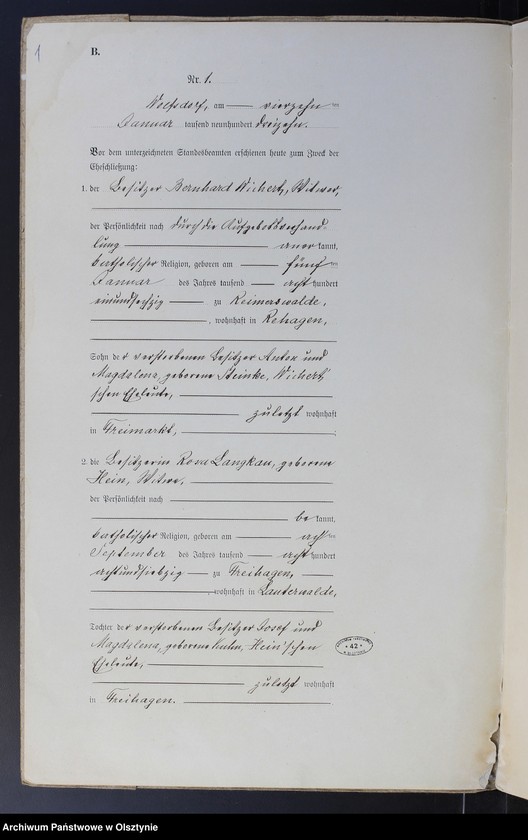 1
B.
Nr. 1.
Wolfsdorf, am vierzehn ten
Januar tausend neunhundert dreizehn.
Vor dem unterzeichneten Standesbeamten erschienen heute zum Zweck der
Eheschließung:
1. der Besitzer Bernhard Wichert, Witwer,
der Persönlichkeit nach durch die Aufgebotsverhand-
lung anerkannt,
katholischer Religion, geboren am fünf ten
Januar des Jahres tausend acht hundert
einundsechzig zu Reimerswalde,
, wohnhaft in Rehagen,
Sohn der verstorbenen Besitzer Anton und
Magdalena, geborene Steinke, Wichert'
schen Eheleute,
zuletzt wohnhaft
in Freimarkt, ;
2. die Besitzerin Rosa Langkau, geborene
Hein, Witwe,
der Persönlichkeit nach
be kannt,
katholischer Religion, geboren am acht ten
September des Jahres tausend acht hundert
achtundsiebzig zu Freihagen,
, wohnhaft in Lauterwalde,
Tochter der verstorbenen Besitzer Josef und
Magdalena, geborene Hein'schen
Eheleute,
42
zuletzt wohnhaft
in Freihagen.
Archiwum Państwowe w Olsztynie